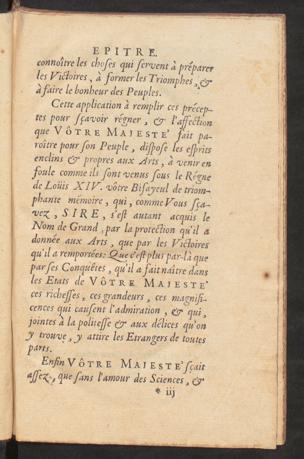 EPITRE.
connoître les choses qui servent à préparer
les Victoires, à former les Triomphes, &
à faire le bonheur des Peuples.
Cette application à remplir ces précep-
tes pour sçavoir régner, & l'affection
que VÔTRE MAJESTE' fait pa-
roître pour son Peuple, dispose les esprits
enclins & propres aux Arts, à venir en
foule comme ils sont venus sous le Régne
de Loüis XIV. vôtre Bisayeul de triom-
phante mémoire, qui, comme Vous sça-
vez, SIRE, s'est autant acquis le
Nom de Grand, par la protection qu'il a
donnée aux Arts, que par les Victoires
qu'il a remportées: Que c'est plus par-là que
par ses Conquêtes, qu'il a fait naître dans
les Etats de VÔTRE MAJESTE'
ces richesses, ces grandeurs, ces magnifi-
cences qui causent l'admiration, & qui,
jointes à la politesse & aux délices qu'on
y trouve, y attire les Etrangers de toutes
parts.
Enfin VÔTRE MAJESTE' sçait
assez, que sans l'amour des Sciences, &
* iij